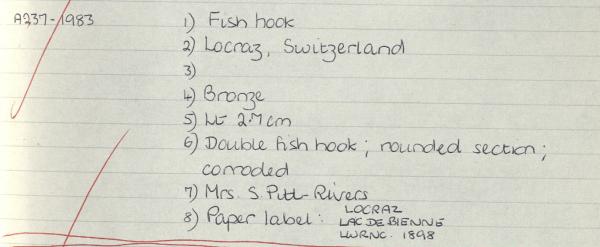 A237-1983
1) Fish hook
2) Locraz, Switzerland
3)
4) Bronze
5) Lt 2.7 cm
6) Double fish hook; rounded section;
corroded
7) Mrs. S. Pitt-Rivers
8) Paper label: LOCRAZ
LAC DE BIENNE
LWRNC. 1898